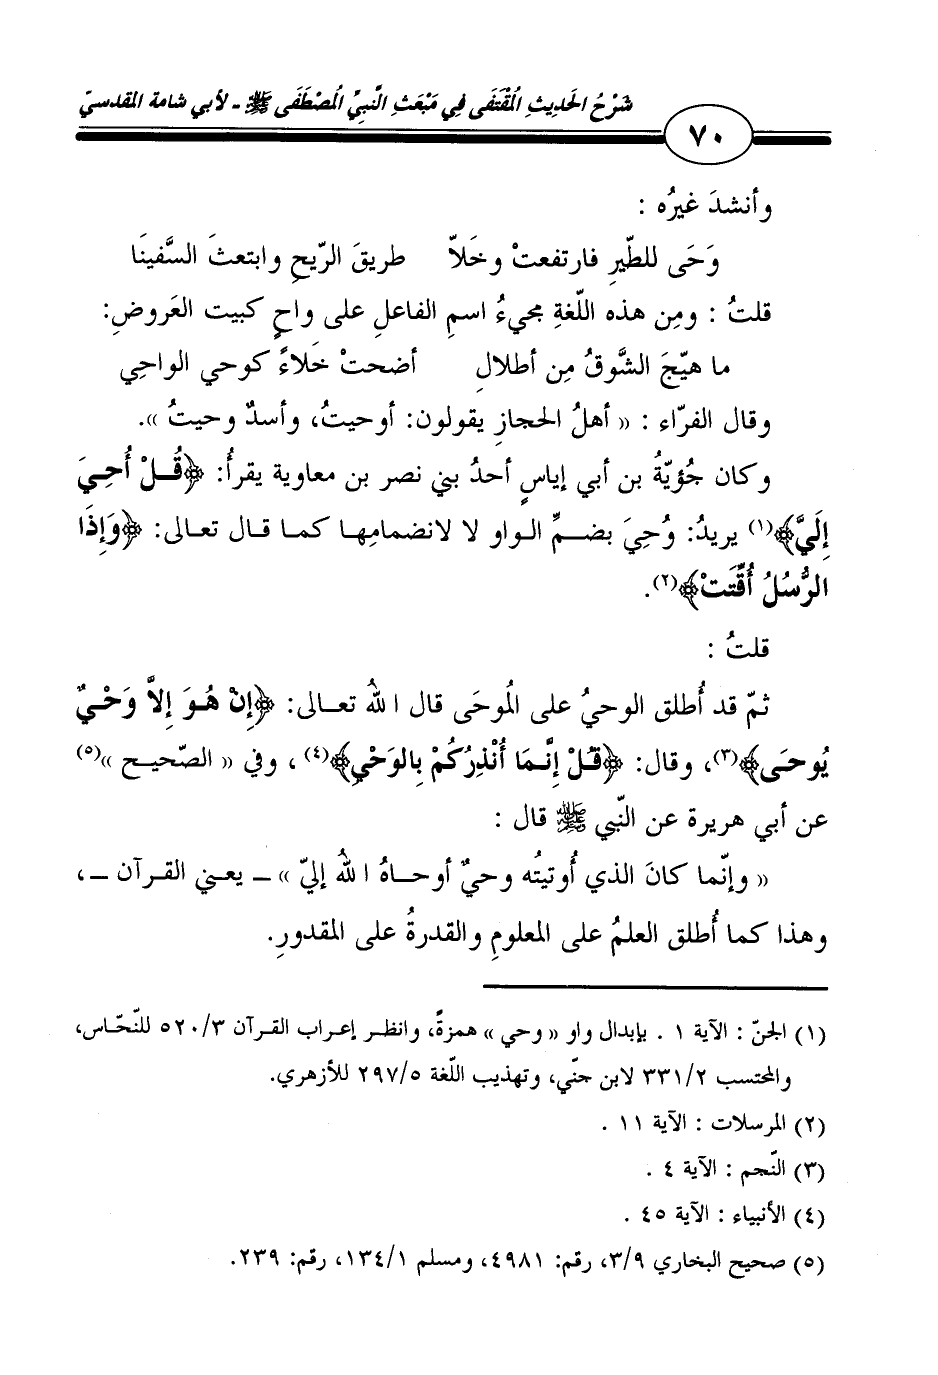 شَرْحُ الحَدِيثِ المُقْتَفَى فِي مَبْعَثِ النَّبِيِّ المُصْطَفَى ﷺ - لأبي شامة المقدسيّ
٧٠
وأنشدَ غيرُه :
وَحَى للطّيرِ فارتفعتْ وخَلاّ طريقَ الرّيحِ وابتعثَ السَّفينَا
قلتُ : ومِن هذه اللّغةِ مجيءُ اسمِ الفاعلِ على واحٍ كبيت العَروضِ:
ما هيّجَ الشَّوقُ مِن أطلالِ أضحتْ خَلاءً كوحي الواحِي
وقال الفرّاء : « أهلُ الحجازِ يقولون: أوحيتُ، وأسدٌ وحيتُ ».
وكان جُؤيّةُ بن أبي إياسٍ أحدُ بني نصر بن معاوية يقرأُ: ﴿قُلْ أُحِيَ
إِلَيَّ﴾(١) يريدُ: وُحِيَ بضمِّ الواو لا لانضمامِها كما قال تعالى: ﴿وَإِذَا
الرُّسُلُ أُقِّتَتْ﴾(٢).
قلتُ :
ثمّ قد أُطلق الوحيُ على المُوحَى قال اللهُ تعالى: ﴿إِنْ هُوَ إِلاَّ وَحْيٌ
يُوحَى﴾(٣)، وقال: ﴿قُلْ إِنَّمَا أُنْذِرُكُمْ بِالوَحْيِ﴾(٤)، وفي « الصّحيح »(٥)
عن أبي هريرة عن النّبي ﷺ قال :
« وإنّما كانَ الذي أُوتيتُه وحيٌ أوحاهُ اللهُ إليّ » – يعني القرآن –،
وهذا كما أُطلق العلمُ على المعلومِ والقدرةُ على المقدورِ.
(١) الجنّ : الآية ١ . بإبدال واو « وحي » همزةً، وانظر إعراب القرآن ٥٢٠/٣ للنّحّاس،
والمحتسب ٣٣١/٢ لابن جنّي، وتهذيب اللّغة ٢٩٧/٥ للأزهري.
(٢) المرسلات : الآية ١١ .
(٣) النّجم : الآية ٤ .
(٤) الأنبياء : الآية ٤٥ .
(٥) صحيح البخاري ٣/٩، رقم: ٤٩٨١، ومسلم ١٣٤/١، رقم: ٢٣٩.